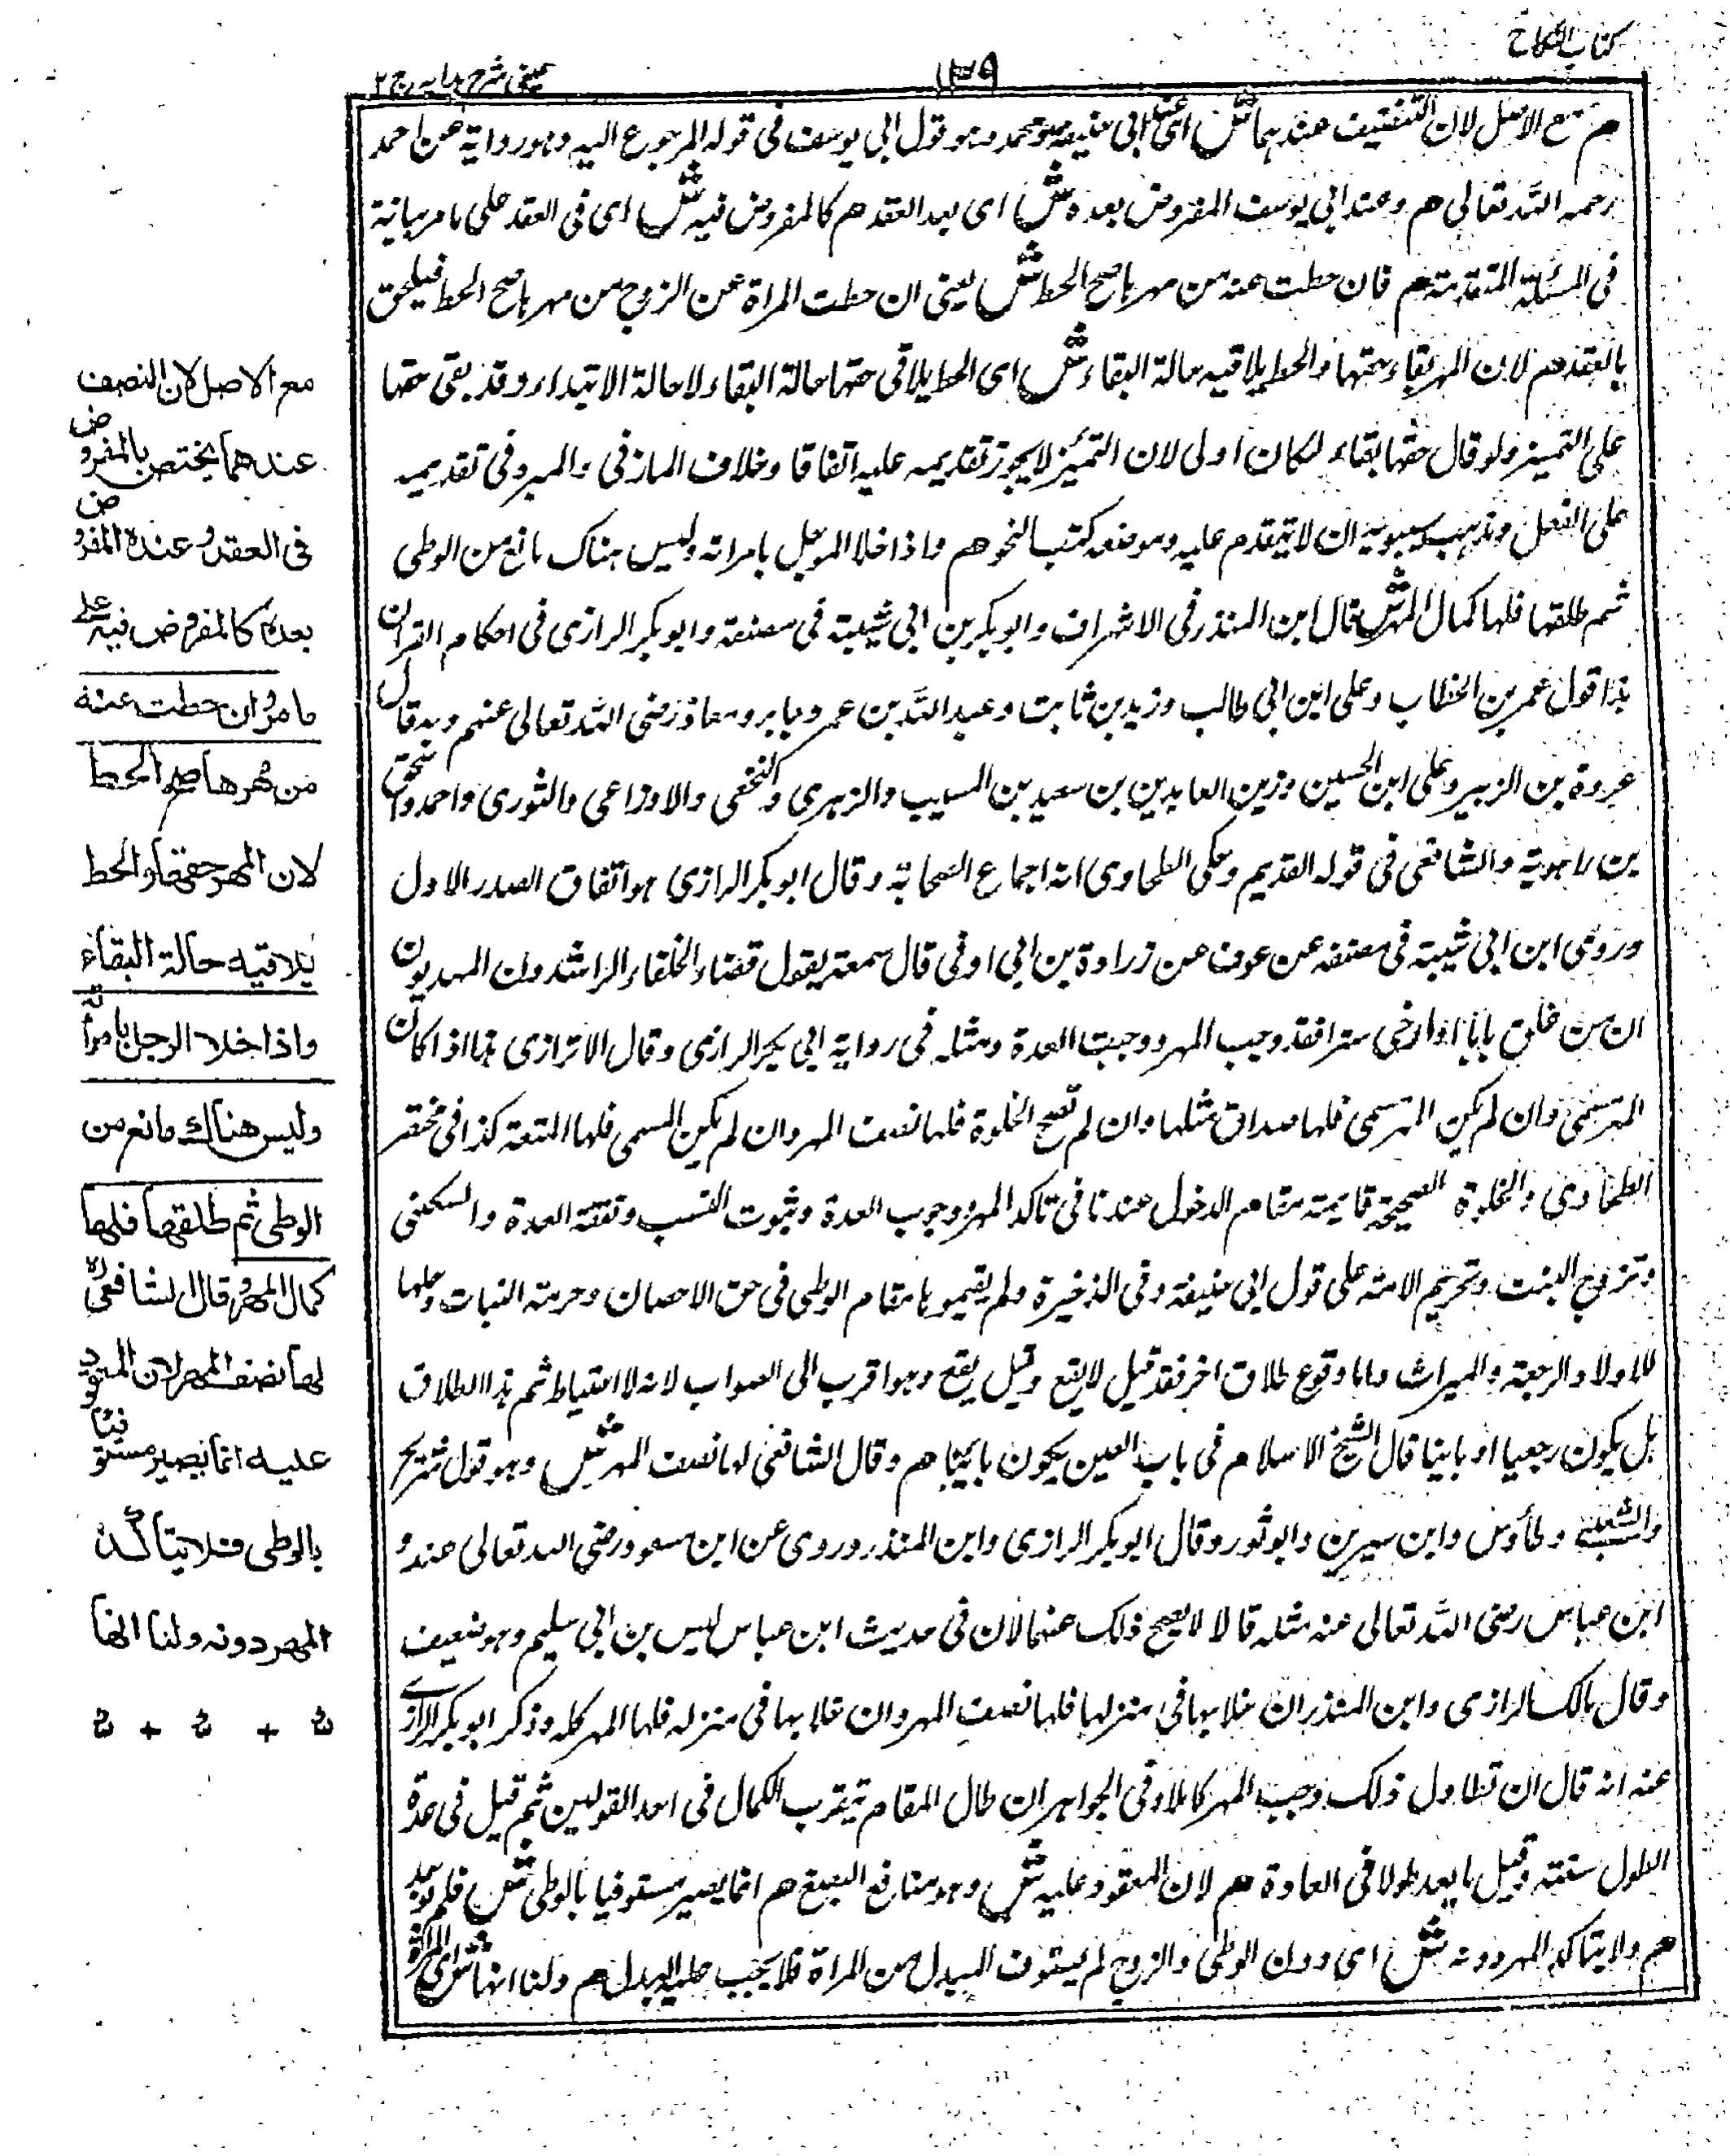 كتاب النكاح
١٣٩
عيني شرح هدايه ج ٢
هم مع الاصل لان التنصيف عندهما ش اى عند ابى حنيفة ومحمد وهو قول ابى يوسف فى قوله المرجوع اليه وهو رواية عن احمد
رحمه الله تعالى هم وعند ابى يوسف المفروض بعده ش اى بعد العقد هم كالمفروض فيه ش اى فى العقد على ما مر بيانه
فى المسئلة المتقدمة هم فان حطت عنه من مهرها صح الحط ش يعنى ان حطت المراة عن الزوج من مهرها صح الحط فيلحق
بالعقد هم لان المهر بقاء حقها والحط يلاقيه حالة البقاء ش اى الحط يلاقى حقها حالة البقاء لا حالة الابتداء وقد بقى حقها
على التميز ولو قال حقها بقاء لكان اولى لان التميز لا يجوز تقديمه عليه اتفاقا وخلاف المازنى والمبرد فى تقديمه
على الفعل ومذهب سيبويه ان لا يتقدم عليه وموضعه كتب النحو هم واذا خلا الرجل بامراته وليس هناك مانع من الوطى
ثم طلقها فلها كمال المهر ش قال ابن المنذر فى الاشراف وابو بكر بن ابى شيبة فى مصنفه وابو بكر الرازى فى احكام القران
هذا قول عمر بن الخطاب وعلى ابن ابى طالب وزيد بن ثابت وعبد الله بن عمر وجابر ومعاذ رضى الله تعالى عنهم وبه قال
عروة بن الزبير وعلى ابن الحسين وزين العابدين بن سعيد بن المسيب والزهرى والنخعى والاوزاعى والثورى واحمد واسحق
بن راهوية والشافعى فى قوله القديم وحكى الطحاوى انه اجماع الصحابة وقال ابو بكر الرازى هو اتفاق الصدر الاول
وروى ابن ابى شيبة فى مصنفه عن عوف عن زرارة بن ابى اوفى قال سمعته يقول قضاء الخلفاء الراشدون المهديون
ان من غلق بابا او ارخى سترا فقد وجب المهر ووجبت العدة ومثله فى رواية ابى بكر الرازى وقال الاترازى هذا اذا كان
المهر سمى وان لم يكن المهر سمى فلها صداق مثلها وان لم تصح الخلوة فلها نصف المهر وان لم يكن المسمى فلها المتعة كذا فى مختصر
الطحاوى والخلوة الصحيحة قايمة مقام الدخول عندنا فى تاكد المهر ووجوب العدة وثبوت النسب ونفقة العدة والسكنى
وتزوج البنت وتحريم الامة على قول ابى حنيفة وفى الذخيرة ولم يقيموها مقام الوطى فى حق الاحصان وحرمة البنات وحلها
للاول والرجعة والميراث واما وقوع طلاق اخر فقد قيل لا يقع وقيل يقع وهو اقرب الى الصواب لانه لا احتياط ثم هذا الطلاق
بل يكون رجعيا او باينا قال الشيخ الاسلام فى باب العين يكون باينا هم وقال الشافعى لها نصف المهر ش وهو قول شريح
والشعبى وطاؤس وابن سيرين وابو ثور وقال ابو بكر الرازى وابن المنذر وروى عن ابن مسعود رضى الله تعالى عنه و
ابن عباس رضى الله تعالى عنه مثله قالا لا يصح ذلك عنهما لان فى حديث ابن عباس ليس بن ابى سليم وهو ضعيف
وقال مالك الرازى وابن المنذر ان خلا بها فى منزلها فلها نصف المهر وان خلا بها فى منزله فلها المهر كله وذكر ابو بكر الرازى
عنه انه قال ان تطاول ذلك وجب المهر كاملا وفى الجواهر ان طال المقام يتقرب الكمال فى احد القولين ثم قيل فى مدة
الطول سنة وقيل ما يعد طولا فى العادة هم لان المعقود عليه ش وهو منافع البضع هم انما يصير مستوفيا بالوطى ش فلم يوجد
هم ولا يتاكد المهر دونه ش اى دون الوطى والزوج لم يستوف المبدل من المراة فلا يجب عليه البدل هم ولنا انها ش اى المراة
مع الاصل لان النصف
عندهما يختص بالمفروض
فى العقد وعنده المفروض
بعده كالمفروض فيه على
ما مر وان حطت عنه
من مهرها صح الحط
لان المهر حقها والحط
يلاقيه حالة البقاء
واذا خلا الرجل بامرأته
وليس هناك مانع من
الوطى ثم طلقها فلها
كمال المهر وقال الشافعى ره
لها نصف المهر لان المعقود
عليه انما يصير مستوفيا
بالوطى فلا يتأكد
المهر دونه ولنا انها